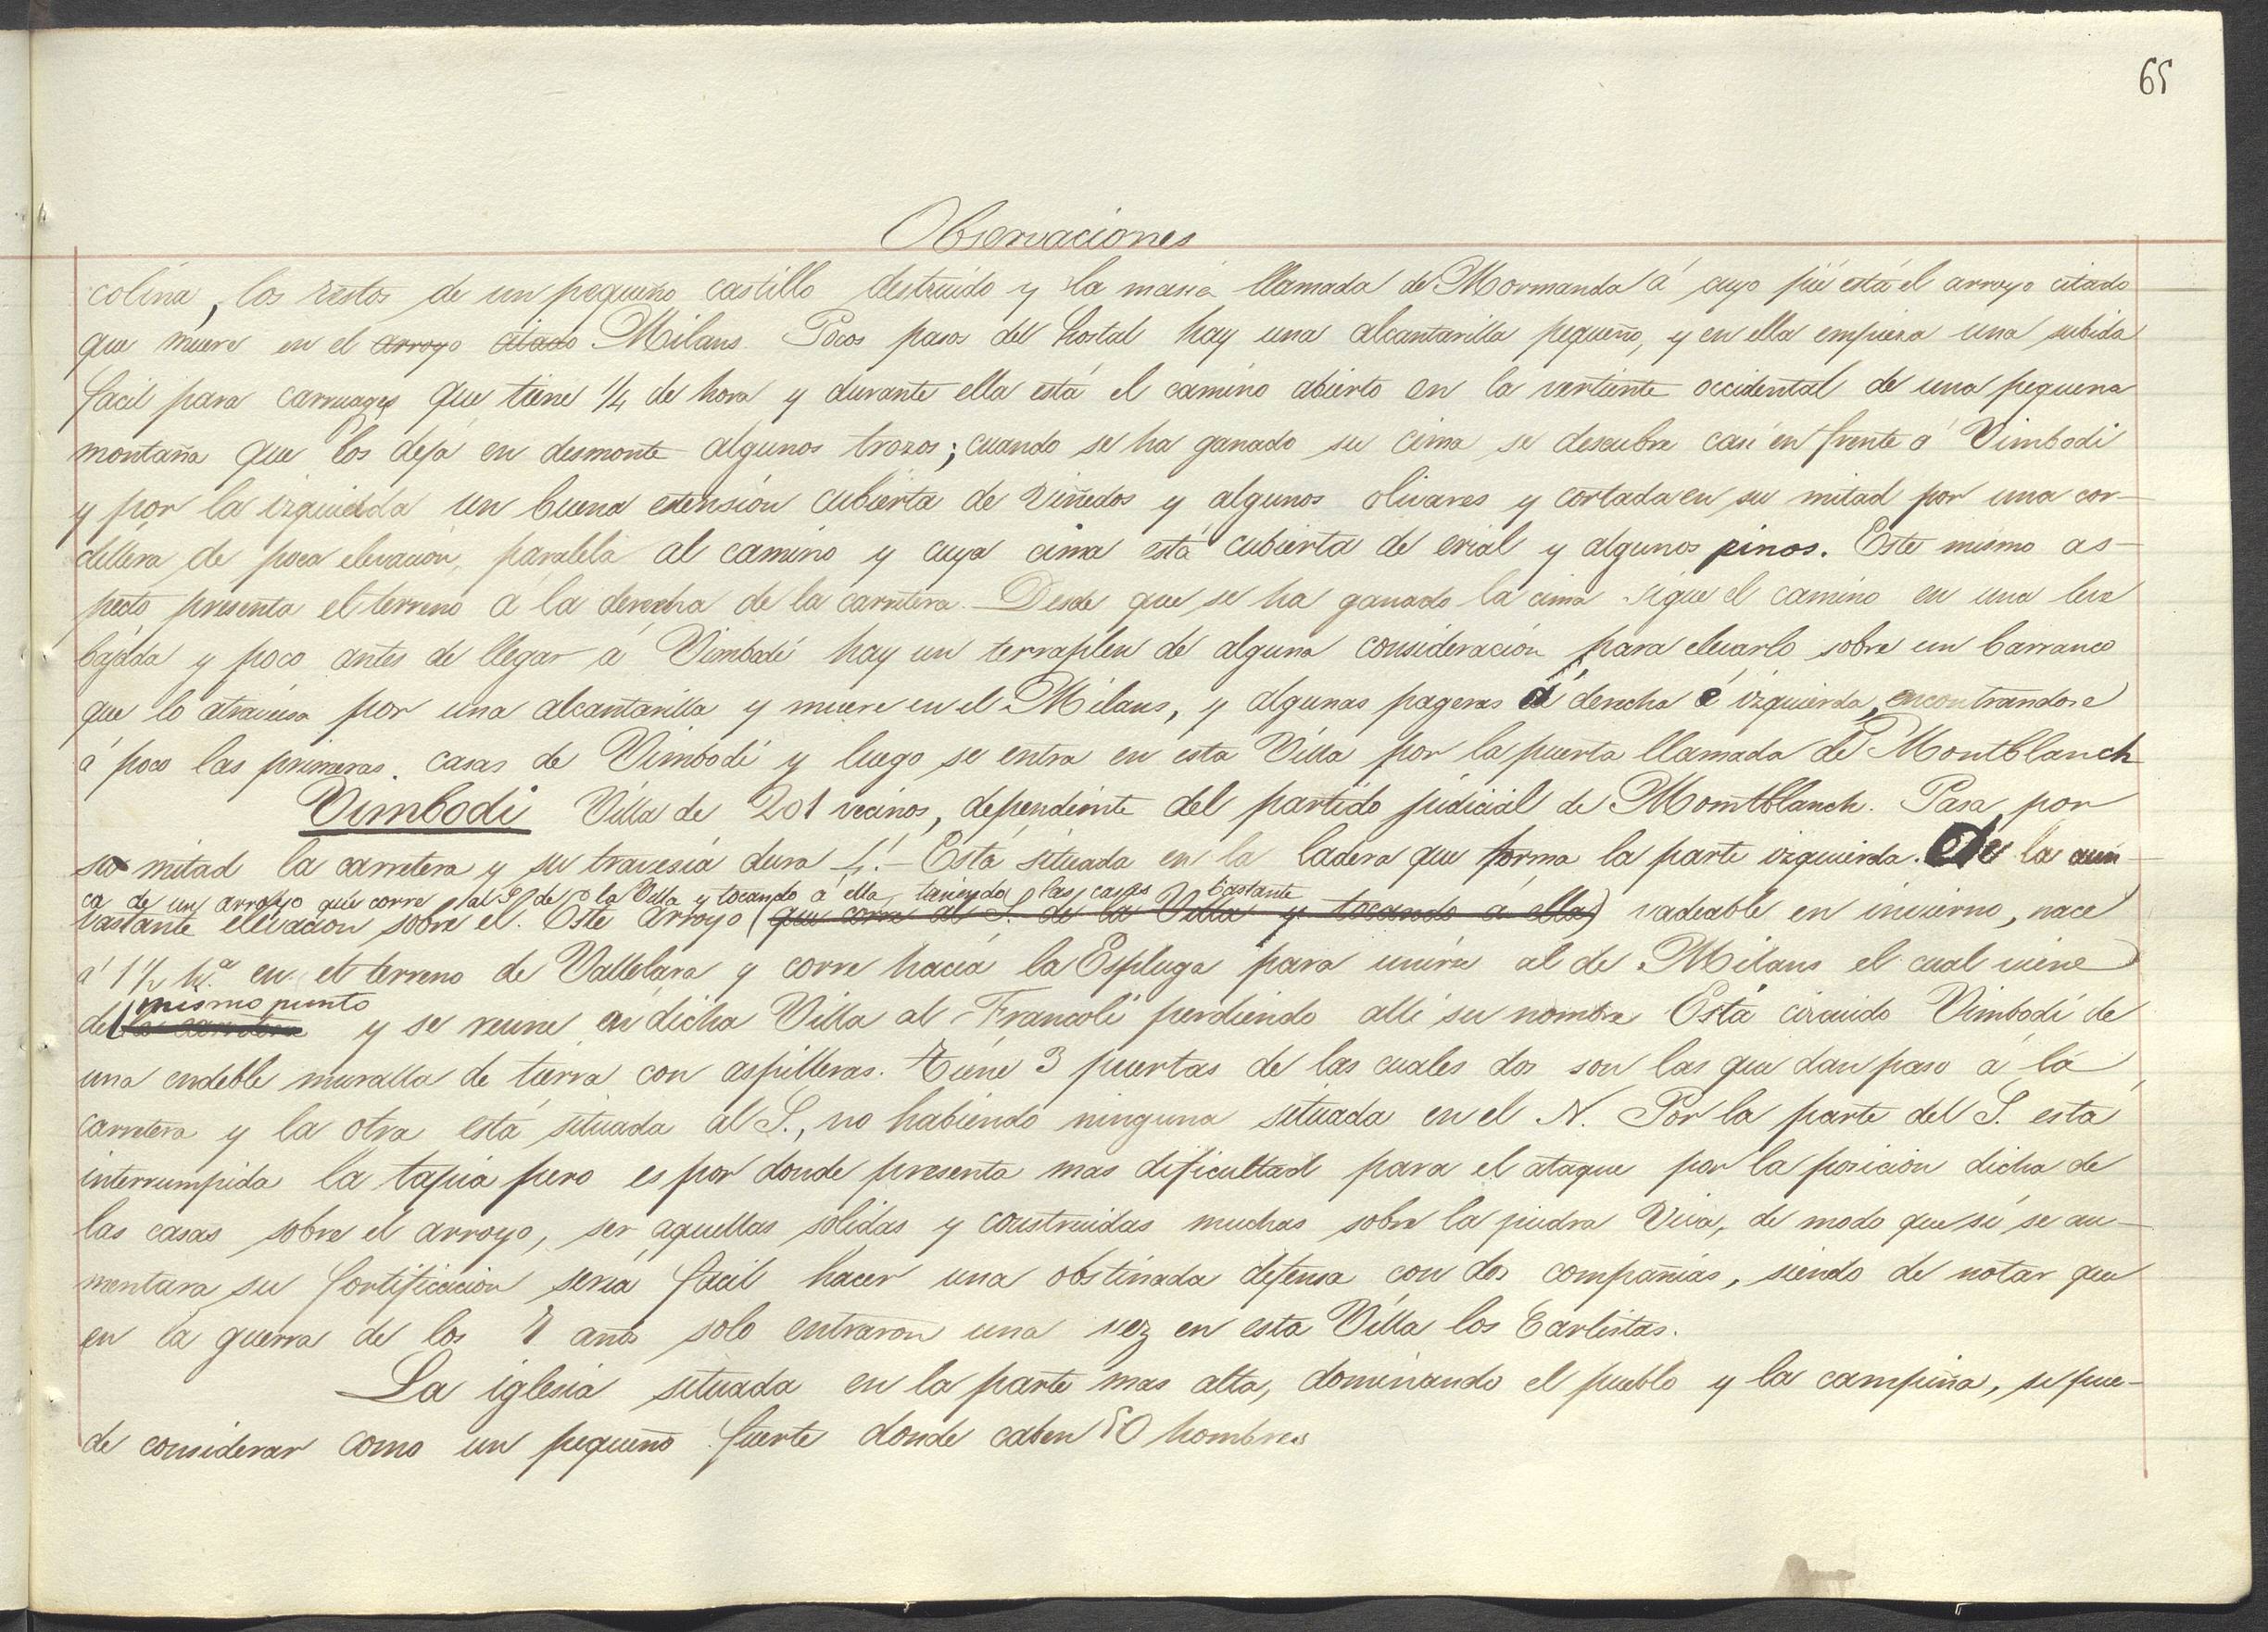 65
Observaciones
colina, los restos de un pequeño castillo destruido y la masia llamada de Mormanda á cuyo pié está el arroyo citado
que muere en el arroyo citado Milans. Pocos pasos del hostal hay una alcantarilla pequeño, y en ella empieza una subida
facil para carruages que tiene 1/4 de hora y durante ella está el camino abierto en la vertiente occidental de una pequena
montaña que los deja en desmonte algunos trozos; cuando se ha ganado su cima se descubre casi en frente á Vimbodi
y por la izquierda un buena estensión cubierta de viñedos y algunos olivares y cortada en su mitad por una cor-
dillera de poca elevacion, paralela al camino y cuya cima está cubierta de erial y algunos pinos. Este mismo as-
pecto presenta el terreno á la derecha de la carretera. Desde que se ha ganado la cima sigue el camino en una leve
bajada y poco antes de llegar á Vimbodi hay un terraplen de alguna consideración para elevarlo sobre un barranco
que lo atraviesa por una alcantarilla y muere en el Milans, y algunas pageras á derecha é izquierda, encontrandose
á poco las primeras casas de Vimbodi y luego se entra en esta Villa por la puerta llamada de Montblanch
Vimbodi Villa de 201 vecinos, dependiente del partido judicial de Momtblanch. Pasa por
su mitad la carretera y su travesia dura 4'.- Está situada en la ladera que forma la parte izquierda. De la cuen
ca de un arroyo que corre al S. de la Villa y tocando á ella teniendo las casas bastante
vastante elevacion sobre el. Este arroyo (que corre al S. de la Villa y tocando á ella) vadeable en invierno, nace
á 1 1/2 h.ª en el terreno de Vallclara y corre hacia la Espluga para unirse al de Milans el cual viene
mismo punto
del la carretera y se reune en dicha Villa al Francoli perdiendo alli su nombre Está circuido Vimbodi de
una endeble muralla de tierra con aspilleras. Tiene 3 puertas de las cuales dos son las que dan paso á la
carretera y la otra está situada al S., no habiendo ninguna situada en el N. Por la parte del S. esta
interrumpida la tapia pero es por donde presenta mas dificultad para el ataque por la posicion dicha de
las casas sobre el arroyo, ser aquellas solidas y construidas muchas sobre la piedra viva, de modo que si se au-
mentara su fortificacion seria facil hacer una obstinada defensa con dos compañias, siendo de notar que
en la guerra de los 7 años solo entraron una vez en esta Villa los Carlistas.
La iglesia situada en la parte mas alta, dominando el pueblo y la campiña, se pue-
de considerar como un pequeño fuerte donde caben 50 hombres